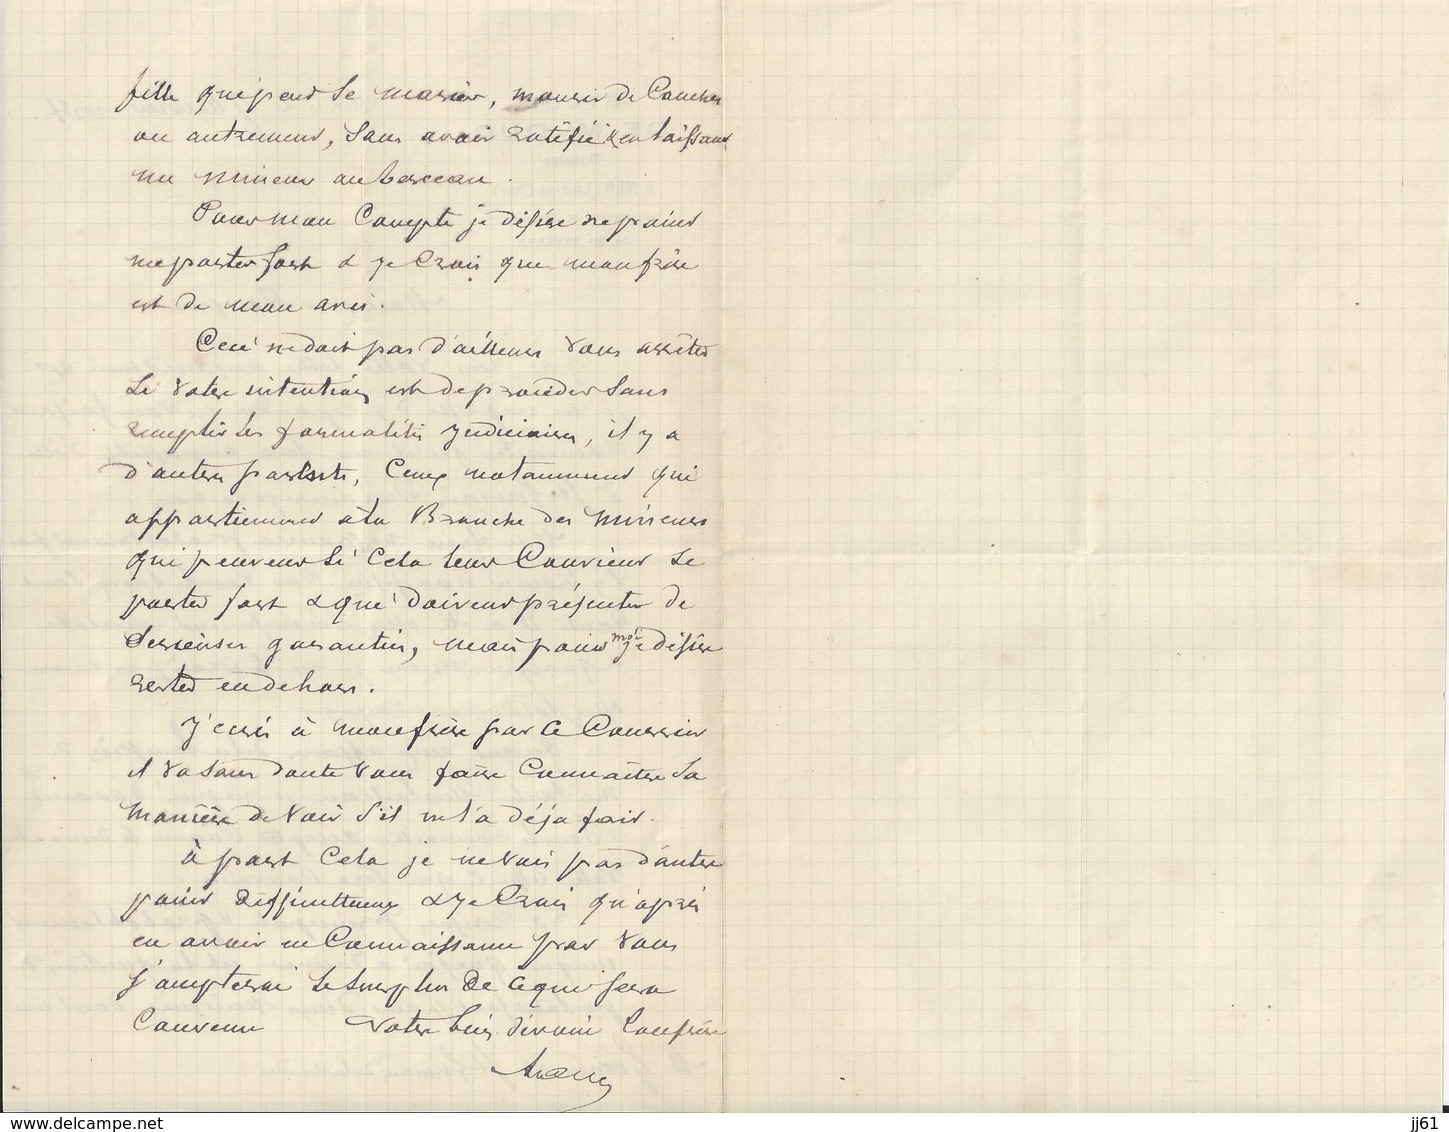 fille qui peut se marier, mourir de couches
ou autrement, sans avoir ratifié & en laissant
un mineur au berceau.
Pour mon compte je désire ne point
me porter fort & je crois que mon frère
est de mon avis.
Ceci ne doit pas d'ailleurs vous arrêter
si votre intention est de procéder sans
remplir les formalités judiciaires, il y a
d'autres parents, ceux notamment qui
appartiennent à la Branche des mineurs
qui peuvent si cela leur convient se
porter fort & qui doivent présenter de
sérieuses garanties, mais pour moi je désire
rester en dehors.
J'écris à mon frère par ce courrier
il va sans doute vous faire connaître sa
manière de voir s'il ne l'a déjà fait.
à part cela je ne vois pas d'autre
point & je crois qu'après
en avoir eu connaissance par vous
j'accepterai le surplus de ce qui sera
convenu Votre bien dévoué confrère
delcampe.net
jj61